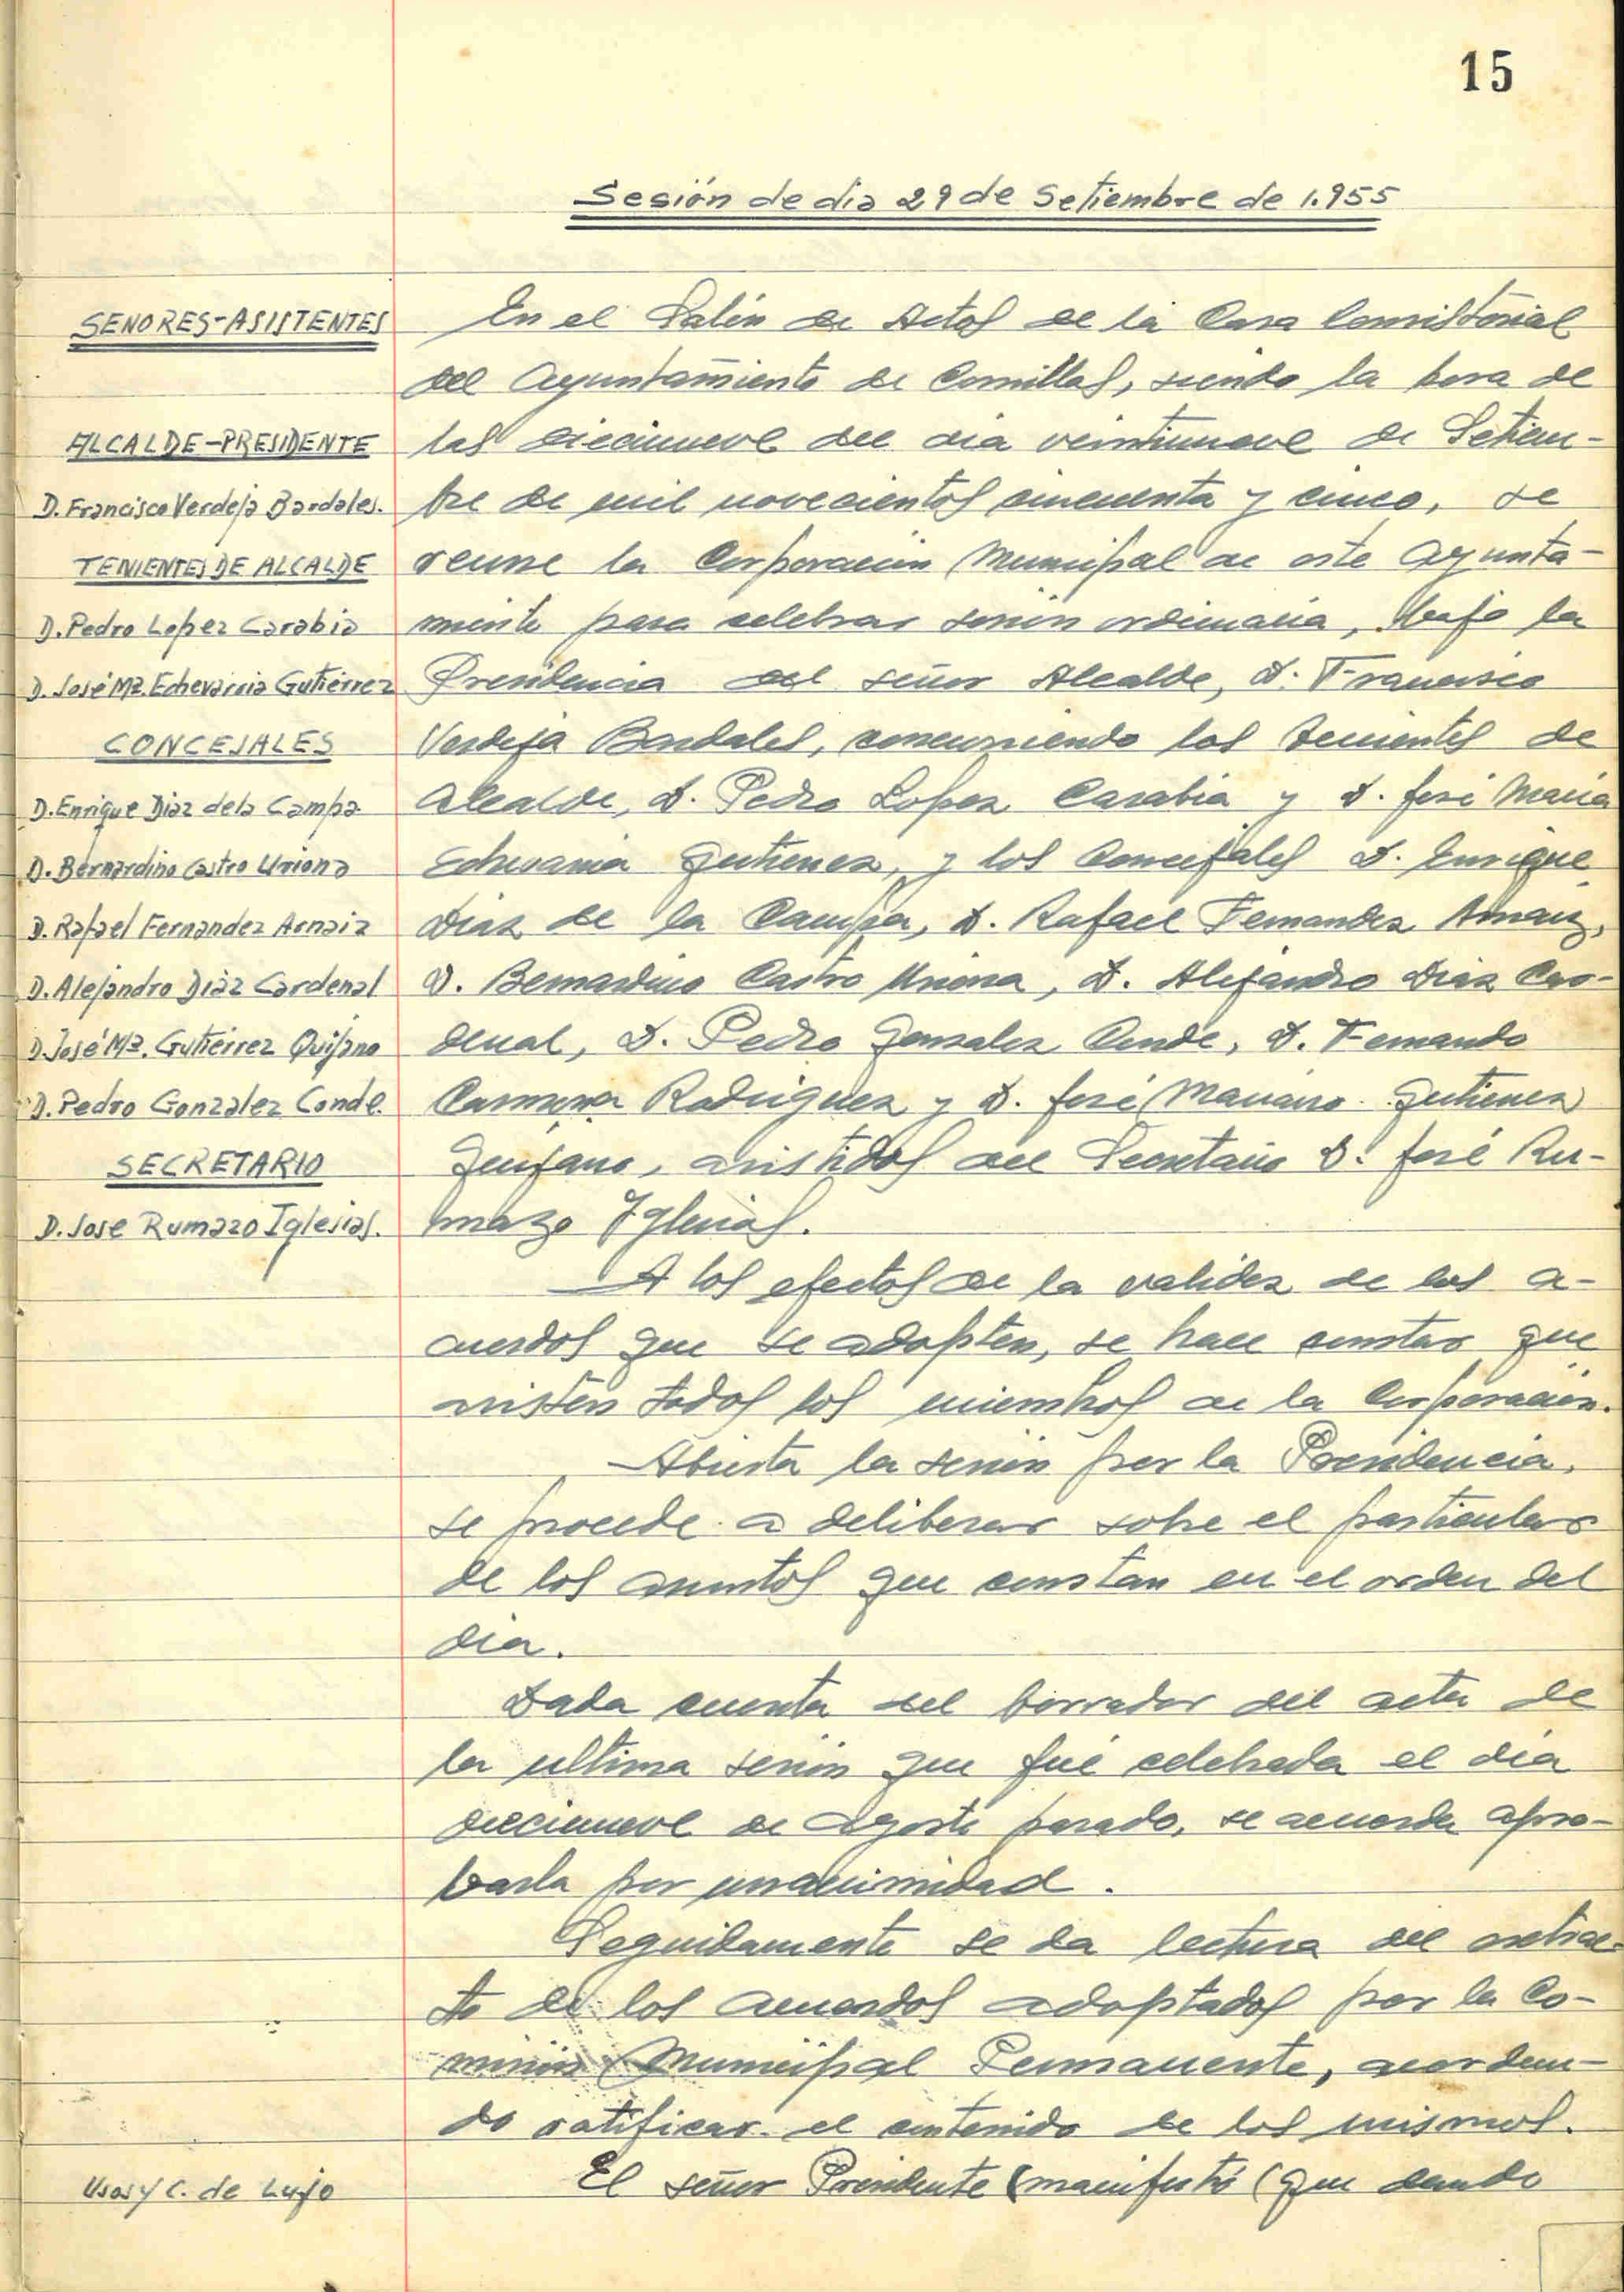 15
Sesión de dia 29 de Setiembre de 1.955
SEÑORES-ASISTENTES
ALCALDE-PRESIDENTE
D. Francisco Verdeja Bardales.
TENIENTES DE ALCALDE
D. Pedro Lopez Carabia
D. José Mª. Echevarria Gutiérrez
CONCEJALES
D. Enrique Diaz de la Campa
D. Bernardino Castro Uriona
D. Rafael Fernandez Arnaiz
D. Alejandro Diaz Cardenal
D. José Mª. Gutiérrez Quijano
D. Pedro González Conde.
SECRETARIO
D. Jose Rumazo Iglesias.
En el Salón de Actos de la Casa Consistorial
del Ayuntamiento de Comillas, siendo la hora de
las diecinueve del dia veintinueve de Setiem-
bre de mil novecientos cincuenta y cinco, se
reune la Corporación Municipal de este Ayunta-
miento para celebrar sesión ordinaria, bajo la
Presidencia del señor Alcalde, D. Francisco
Verdeja Bardales, concurriendo los Tenientes de
Alcalde, D. Pedro Lopez Carabia y D. José Maria
Echevarria Gutierrez, y los Concejales D. Enrique
Diaz de la Campa, D. Rafael Fernandez Arnaiz,
D. Bernardino Castro Uriona, D. Alejandro Diaz Car-
denal, D. Pedro Gonzalez Conde, D. Fernando
Rodriguez y D. José Mariano Gutierrez
Quijano, asistidos del Secretario D. José Ru-
mazo Iglesias.
A los efectos de la validez de los a-
cuerdos que se adopten, se hace constar que
asisten todos los miembros de la Corporación.
Abierta la sesión por la Presidencia,
se procede a deliberar sobre el particular
de los asuntos que constan en el orden del
dia.
Dada cuenta del borrador del acta de
la ultima sesión que fué celebrada el dia
diecinueve de Agosto pasado, se acuerda apro-
barla por unanimidad.
Seguidamente se da lectura del extrac-
to de los acuerdos adoptados por la Co-
misión Municipal Permanente, acordan-
do ratificar el contenido de los mismos.
Usos y C. de Lujo
El señor Presidente manifestó que dando